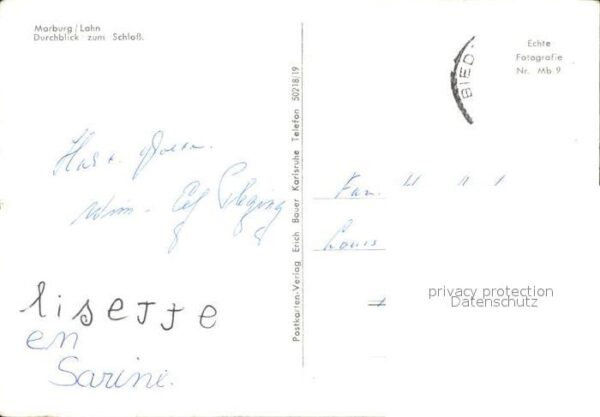 Marburg / Lahn
Durchblick zum Schloß.
Echte
Fotografie
Nr. Mb 9
BIED
Postkarten-Verlag Erich Bauer Karlsruhe Telefon 50218/19
Wim.
Fam.
Louis
lisette
en
Sarine.
privacy protection
Datenschutz